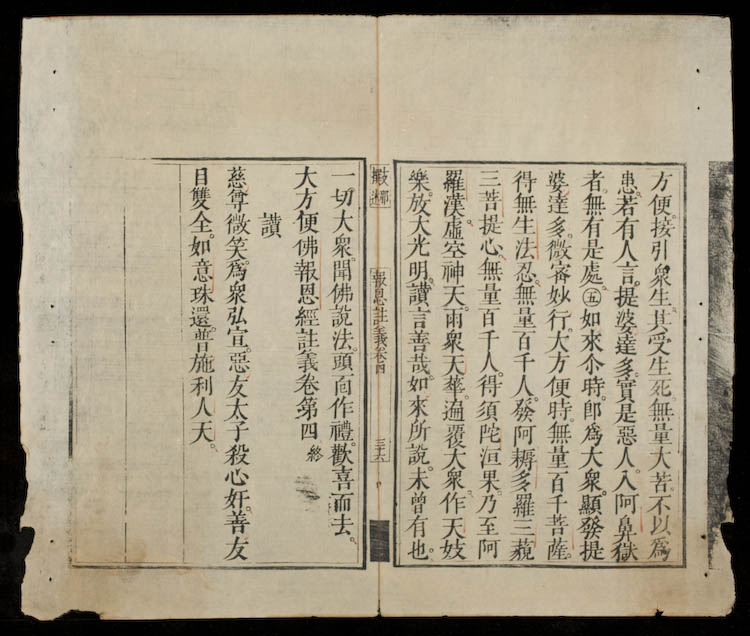 方便。接引衆生。其受生死。無量大苦。不以爲
患。若有人言。提婆達多。實是惡人。入阿鼻獄
者。無有是處。㊄如來尒時。卽爲大衆。顯發提
婆達多。微密妙行。大方便時。無量百千菩薩。
得無生法忍。無量百千人。發阿耨多羅三藐
三菩提心。無量百千人。得須陀洹果。乃至阿
羅漢。虛空神天。雨衆天華。遍覆大衆。作天妓
樂。放大光明。讚言善哉。如來所說。未曾有也。
支那
報恩經註義卷四
三十六
一切大衆。聞佛說法。頭面作禮。歡喜而去。
大方便佛報恩經註義卷第四 終
讚
慈尊微笑。爲衆弘宣。惡友太子殺心奸。善友
目雙全。如意珠還。普施利人天。